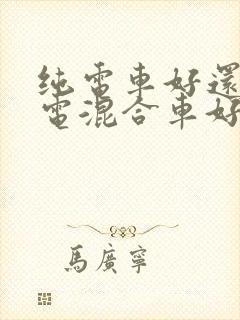 纯電車好還
電混合車好
馬廣寧